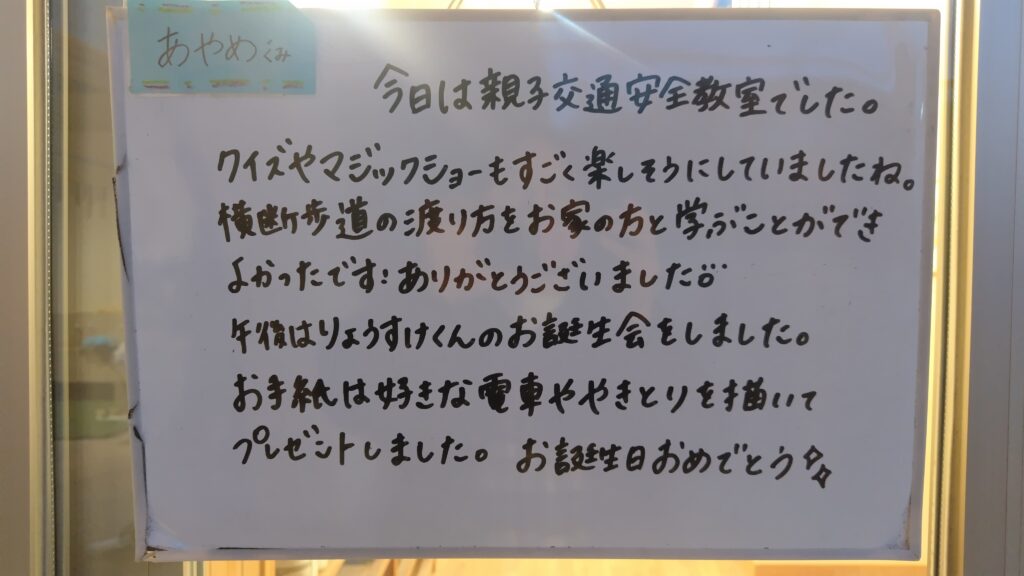 あやめくみ
今日は親子交通安全教室でした。
クイズやマジックショーもすごく楽しそうにしていましたね。
横断歩道の渡り方をお家の方と学ぶことができ
よかったです!ありがとうございました
午後はりょうすけくんのお誕生会をしました。
お手紙は好きな電車ややきとりを描いて
プレゼントしました。 お誕生日おめでとう